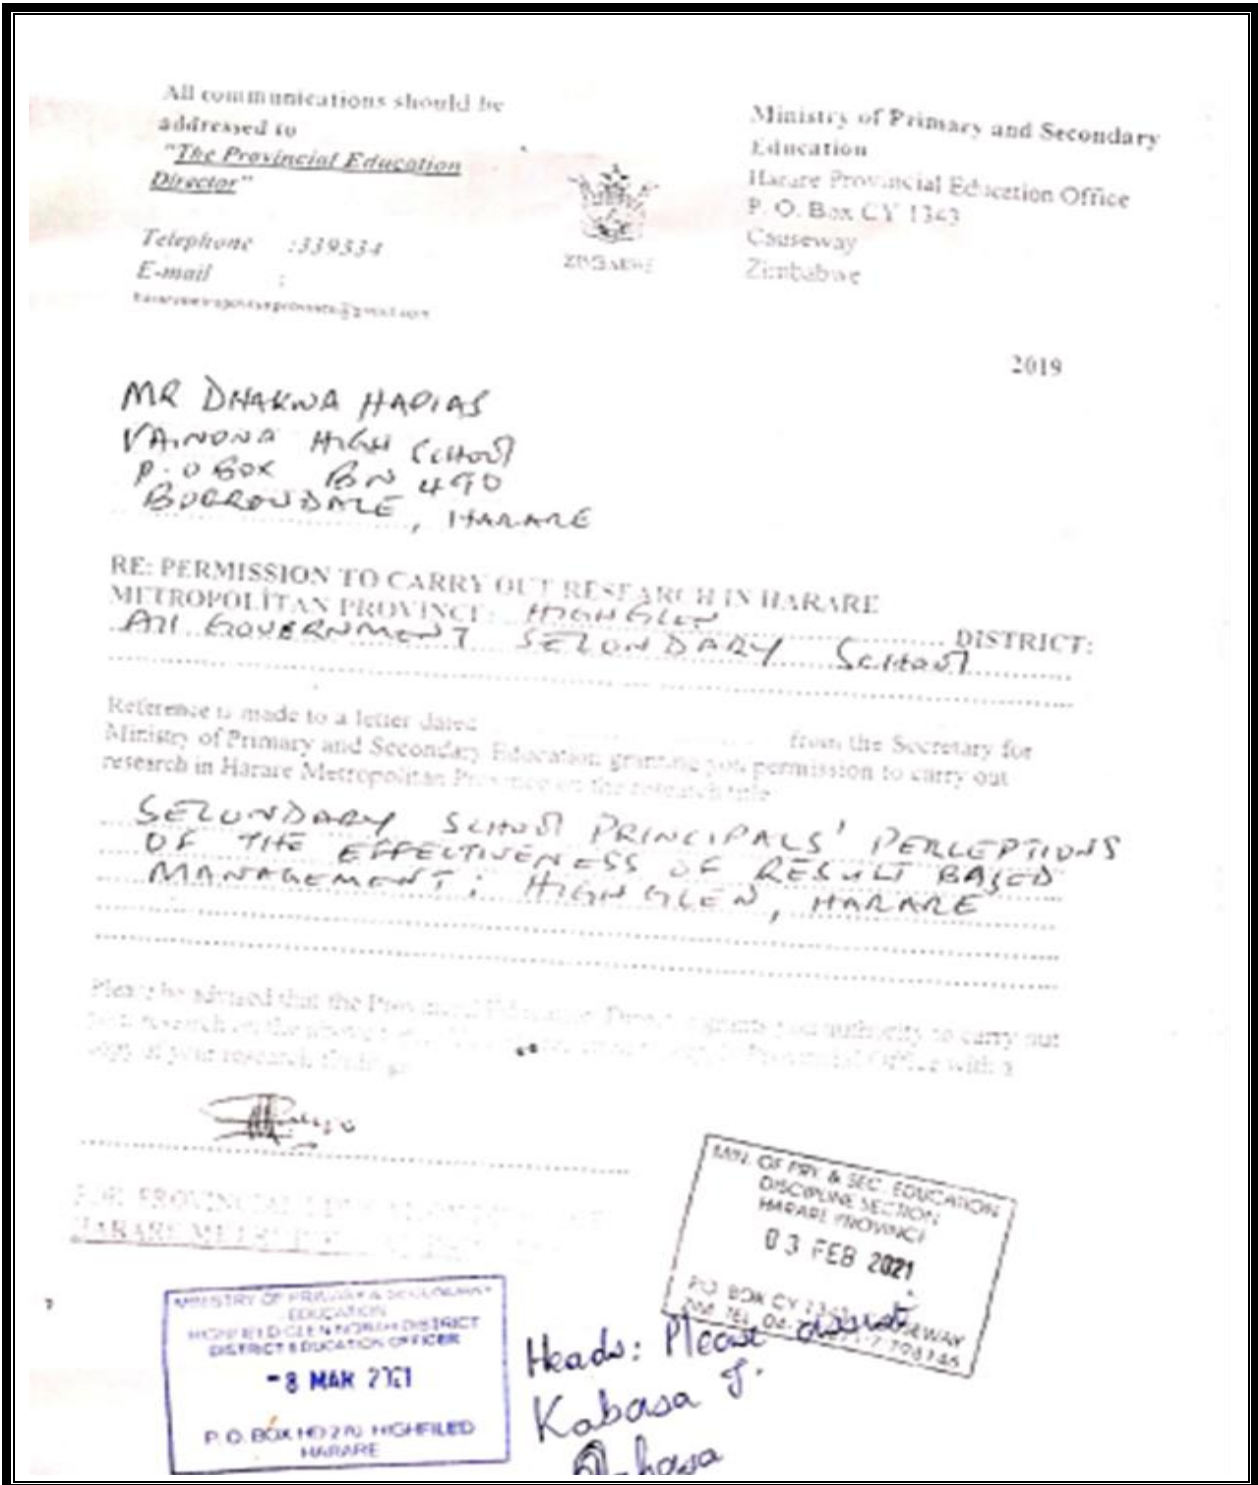 All communications should be
addressed to
"The Provincial Education
Director"
Telephone :339334
E-mail :
ZIMBABWE
Ministry of Primary and Secondary
Education
Harare Provincial Education Office
P. O. Box CY 1343
Causeway
Zimbabwe
2019
MR DHAKWA HAPIAS
VAINONA HIGH SCHOOL
P.O BOX BN 490
BORROWDALE, HARARE
RE: PERMISSION TO CARRY OUT RESEARCH IN HARARE
METROPOLITAN PROVINCE: HIGH GLEN DISTRICT:
All GOVERNMENT SECONDARY SCHOOl
Reference is made to a letter dated from the Secretary for
Ministry of Primary and Secondary Education granting you permission to carry out
research in Harare Metropolitan Province on the research title
SECONDARY SCHOOl PRINCIPALS' PERCEPTIONS
OF THE EFFECTIVENESS OF RESULT BASED
MANAGEMENT: HIGH GLEN, HARARE
Please be advised that the Provincial Education Director grants you authority to carry out
your research on the above Provincial Office with a
copy of your research findings
FOR PROVINCIAL
HARARE
MIN. OF PRY. & SEC. EDUCATION
DISCIPLINE SECTION
HARARE PROVINCE
03 FEB 2021
P.O. BOX CY 1343, CAUSEWAY
ZIM TEL 04-
MINISTRY OF PRIMARY & SECONDARY
EDUCATION
HIGHFIELD GLEN NORTH DISTRICT
DISTRICT EDUCATION OFFICER
-8 MAR 2021
P. O. BOX HD 270 HIGHFILED
HARARE
Heads: Please assist
Kabasa J.